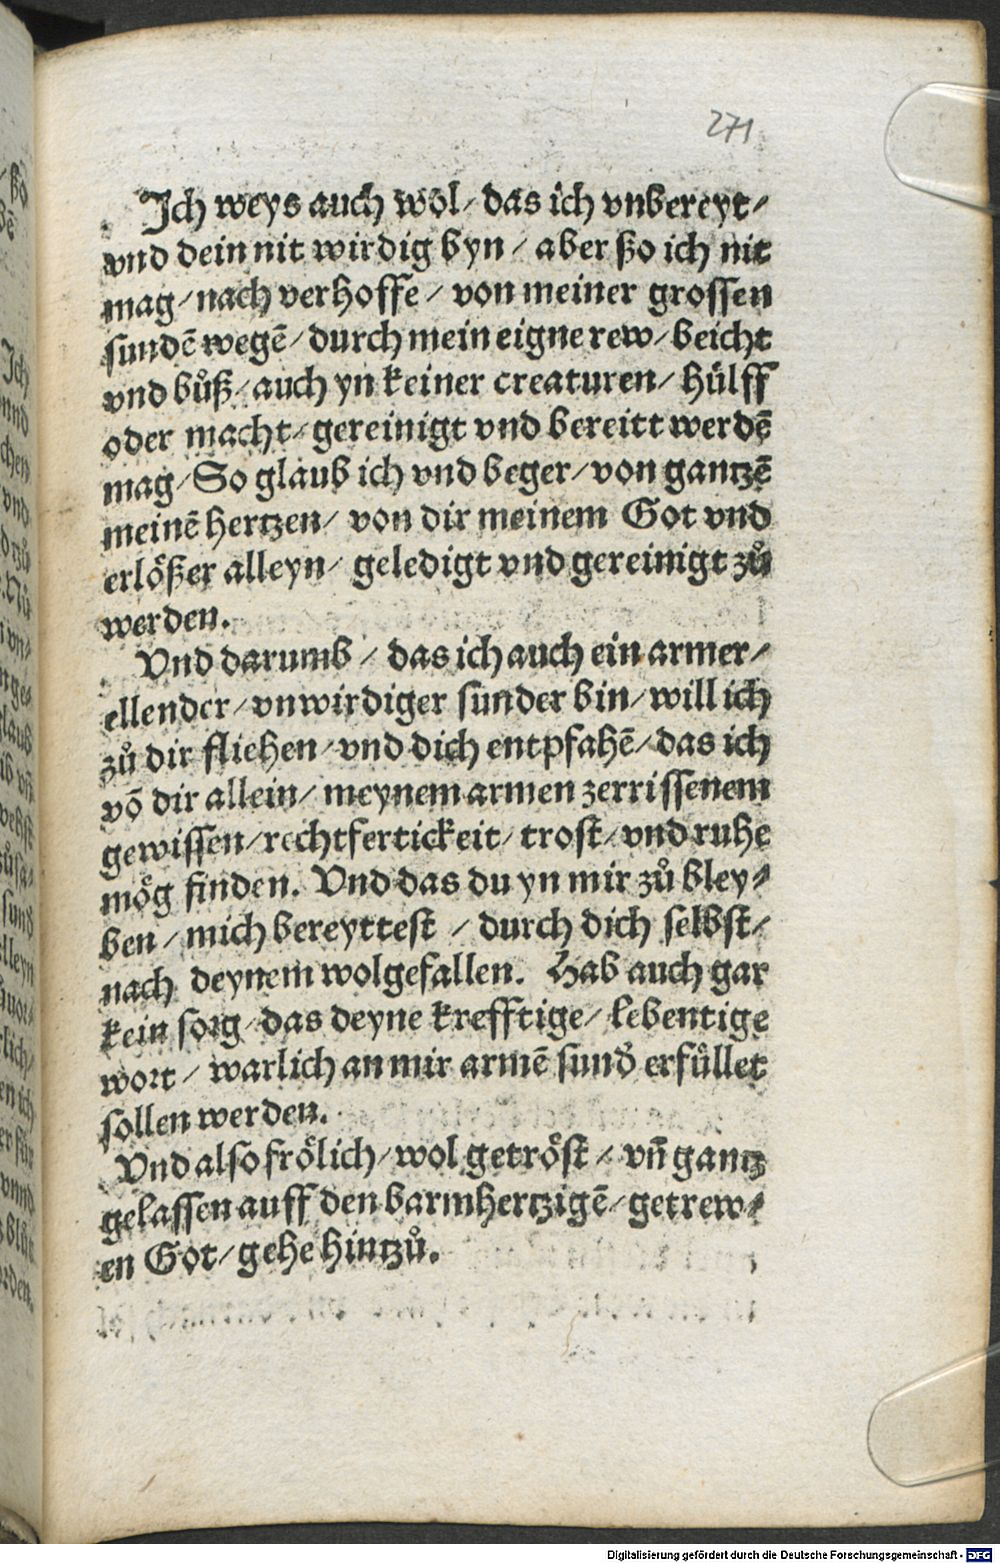 271
Ich weys auch wol/ das ich vnbereyt/
vnd dein nit wirdig byn/ aber ßo ich nit
mag/ nach verhoffe/ von meiner grossen
sundē wegē/ durch mein eigne rew/ beicht
vnd bůß/ auch yn keiner creaturen/ hülff
oder macht/ gereinigt vnd bereitt werdē
mag/ So glaub ich vnd beger/ von gantzē
meinē hertzen/ von dir meinem Got vnd
erlößer alleyn/ geledigt vnd gereinigt zů
werden.
Vnd darumb/ das ich auch ein armer/
ellender/ vnwirdiger sunder bin/ will ich
zů dir fliehen/ vnd dich entpfahē/ das ich
vō dir allein/ meynem armen zerrissenem
gewissen/ rechtfertickeit/ trost/ vnd ruhe
mög finden. Vnd das du yn mir zů bley⸗
ben/ mich bereyttest/ durch dich selbst/
nach deynem wolgefallen. Hab auch gar
kein sorg/ das deyne krefftige/ lebentige
wort/ warlich an mir armē sund̕ erfüllet
sollen werden.
Vnd also frölich/ wol getröst/ vn̄ gantz
gelassen auff den barmhertzigē/ getrew⸗
en Got/ gehe hintzů.
Digitalisierung gefördert durch die Deutsche Forschungsgemeinschaft - DFG